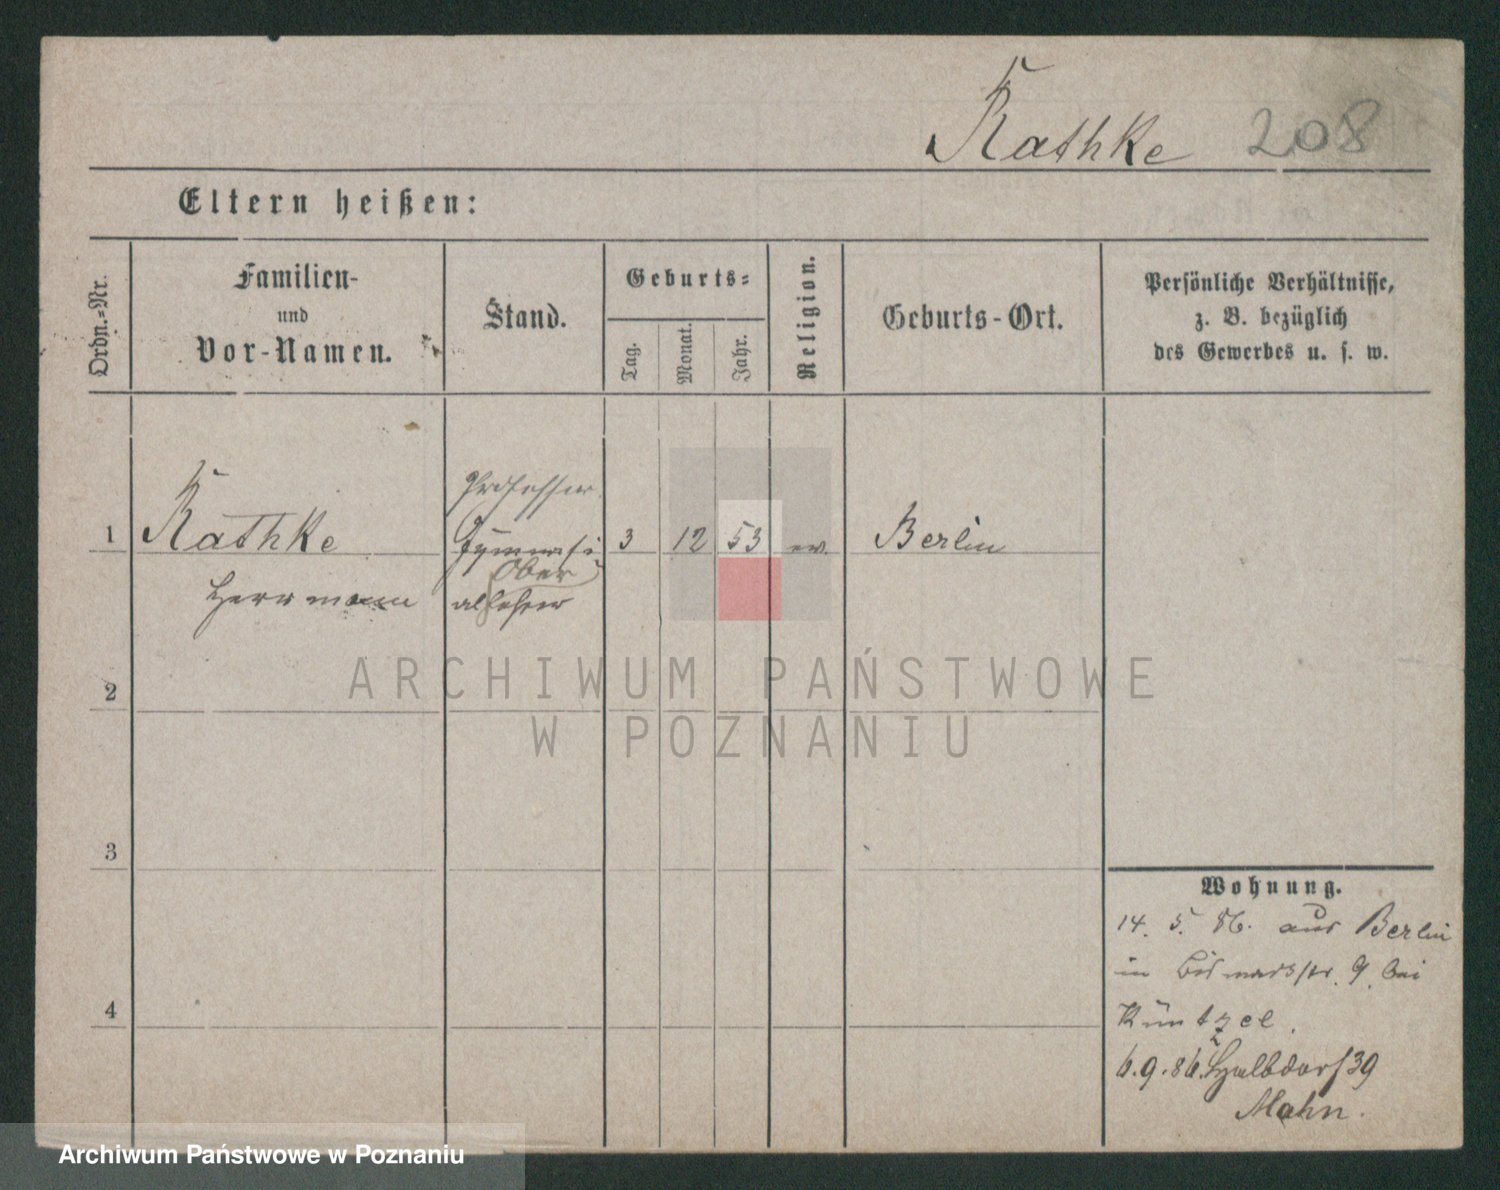 Rathke 208
Eltern heißen:
Ordn.-Nr.
Familien-
und
Vor-Namen.
Stand.
Geburts-
Tag.
Monat.
Jahr.
Religion.
Geburts-Ort.
Persönliche Verhältnisse,
z. B. bezüglich
des Gewerbes u. s. w.
Professor
1 Rathke Gymnasi 3 12 53 ev. Berlin
Ober
Herrmann allehrer
ARCHIWUM PAŃSTWOWE
2
W POZNANIU
3
Wohnung.
14. 5. 86. aus Berlin
in Bismarckstr. 9. bei
4
Küntzel.
6.9.86. Halbdorf 39
Mahn.
Archiwum Państwowe w Poznaniu